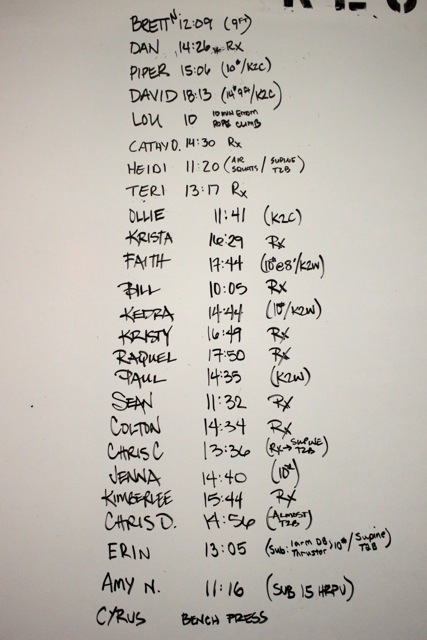 BRETT N 12:09 (9FT)
DAN 14:26 Rx
PIPER 15:06 (10#/K2C)
DAVID 18:13 (14# 9ft/K2C)
LOU 10 10 MIN EMOM ROPE CLIMB
CATHY D. 14:30 Rx
HEIDI 11:20 (AIR SQUATS / SUPINE T2B)
TERI 13:17 Rx
OLLIE 11:41 (K2C)
KRISTA 16:29 Rx
FAITH 17:44 (10#@8'/K2W)
BILL 10:05 Rx
KEDRA 14:44 (10#/K2W)
KRISTY 16:49 Rx
RAQUEL 17:50 Rx
PAUL 14:35 (K2W)
SEAN 11:32 Rx
COLTON 14:34 Rx
CHRIS C 13:36 (Rx→ SUPINE T2B)
JENNA 14:40 (10#)
KIMBERLEE 15:44 Rx
CHRIS D. 14:56 (ALMOST T2B)
ERIN 13:05 (Sub: 1arm DB Thruster 10# / Supine T2B)
AMY N. 11:16 (SUB 15 HRPU)
CYRUS BENCH PRESS